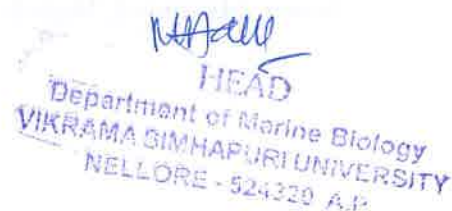 HEAD
Department of Marine Biology
VIKRAMA SIMHAPURI UNIVERSITY
NELLORE - 524320 A.P.